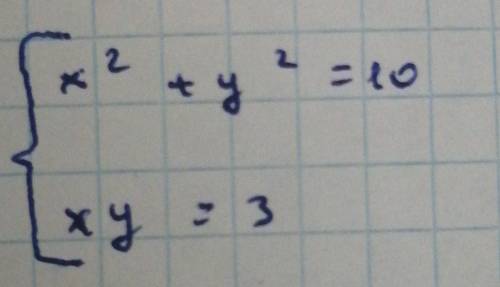 x² + y² = 10
xy = 3